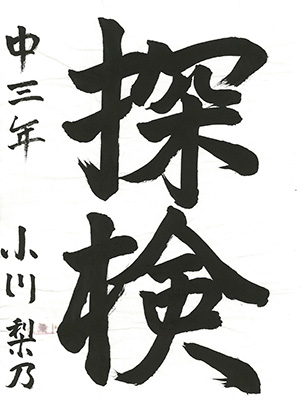 探検
中三年 小川梨乃